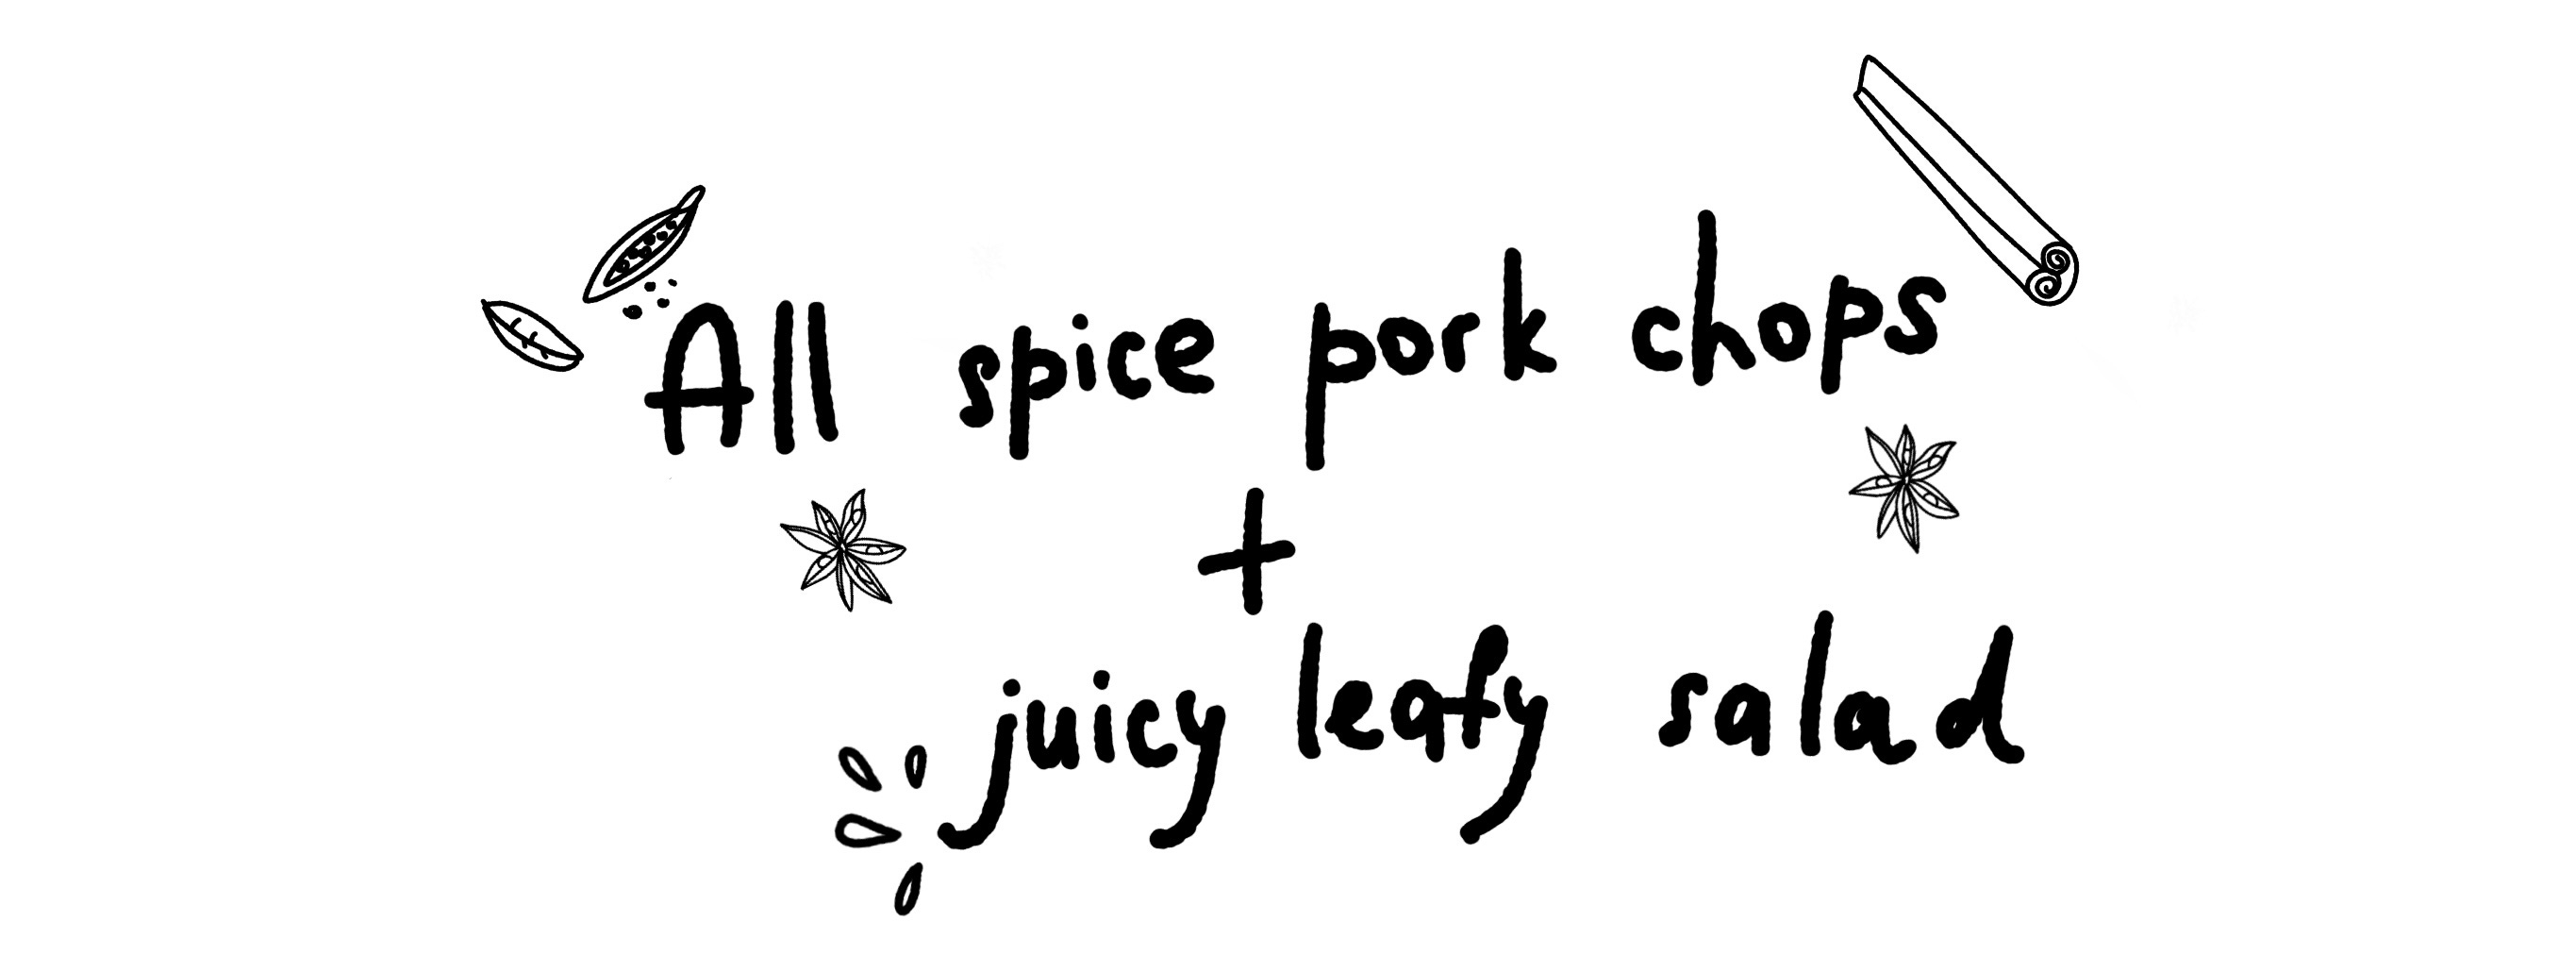 All spice pork chops
+
juicy leafy salad